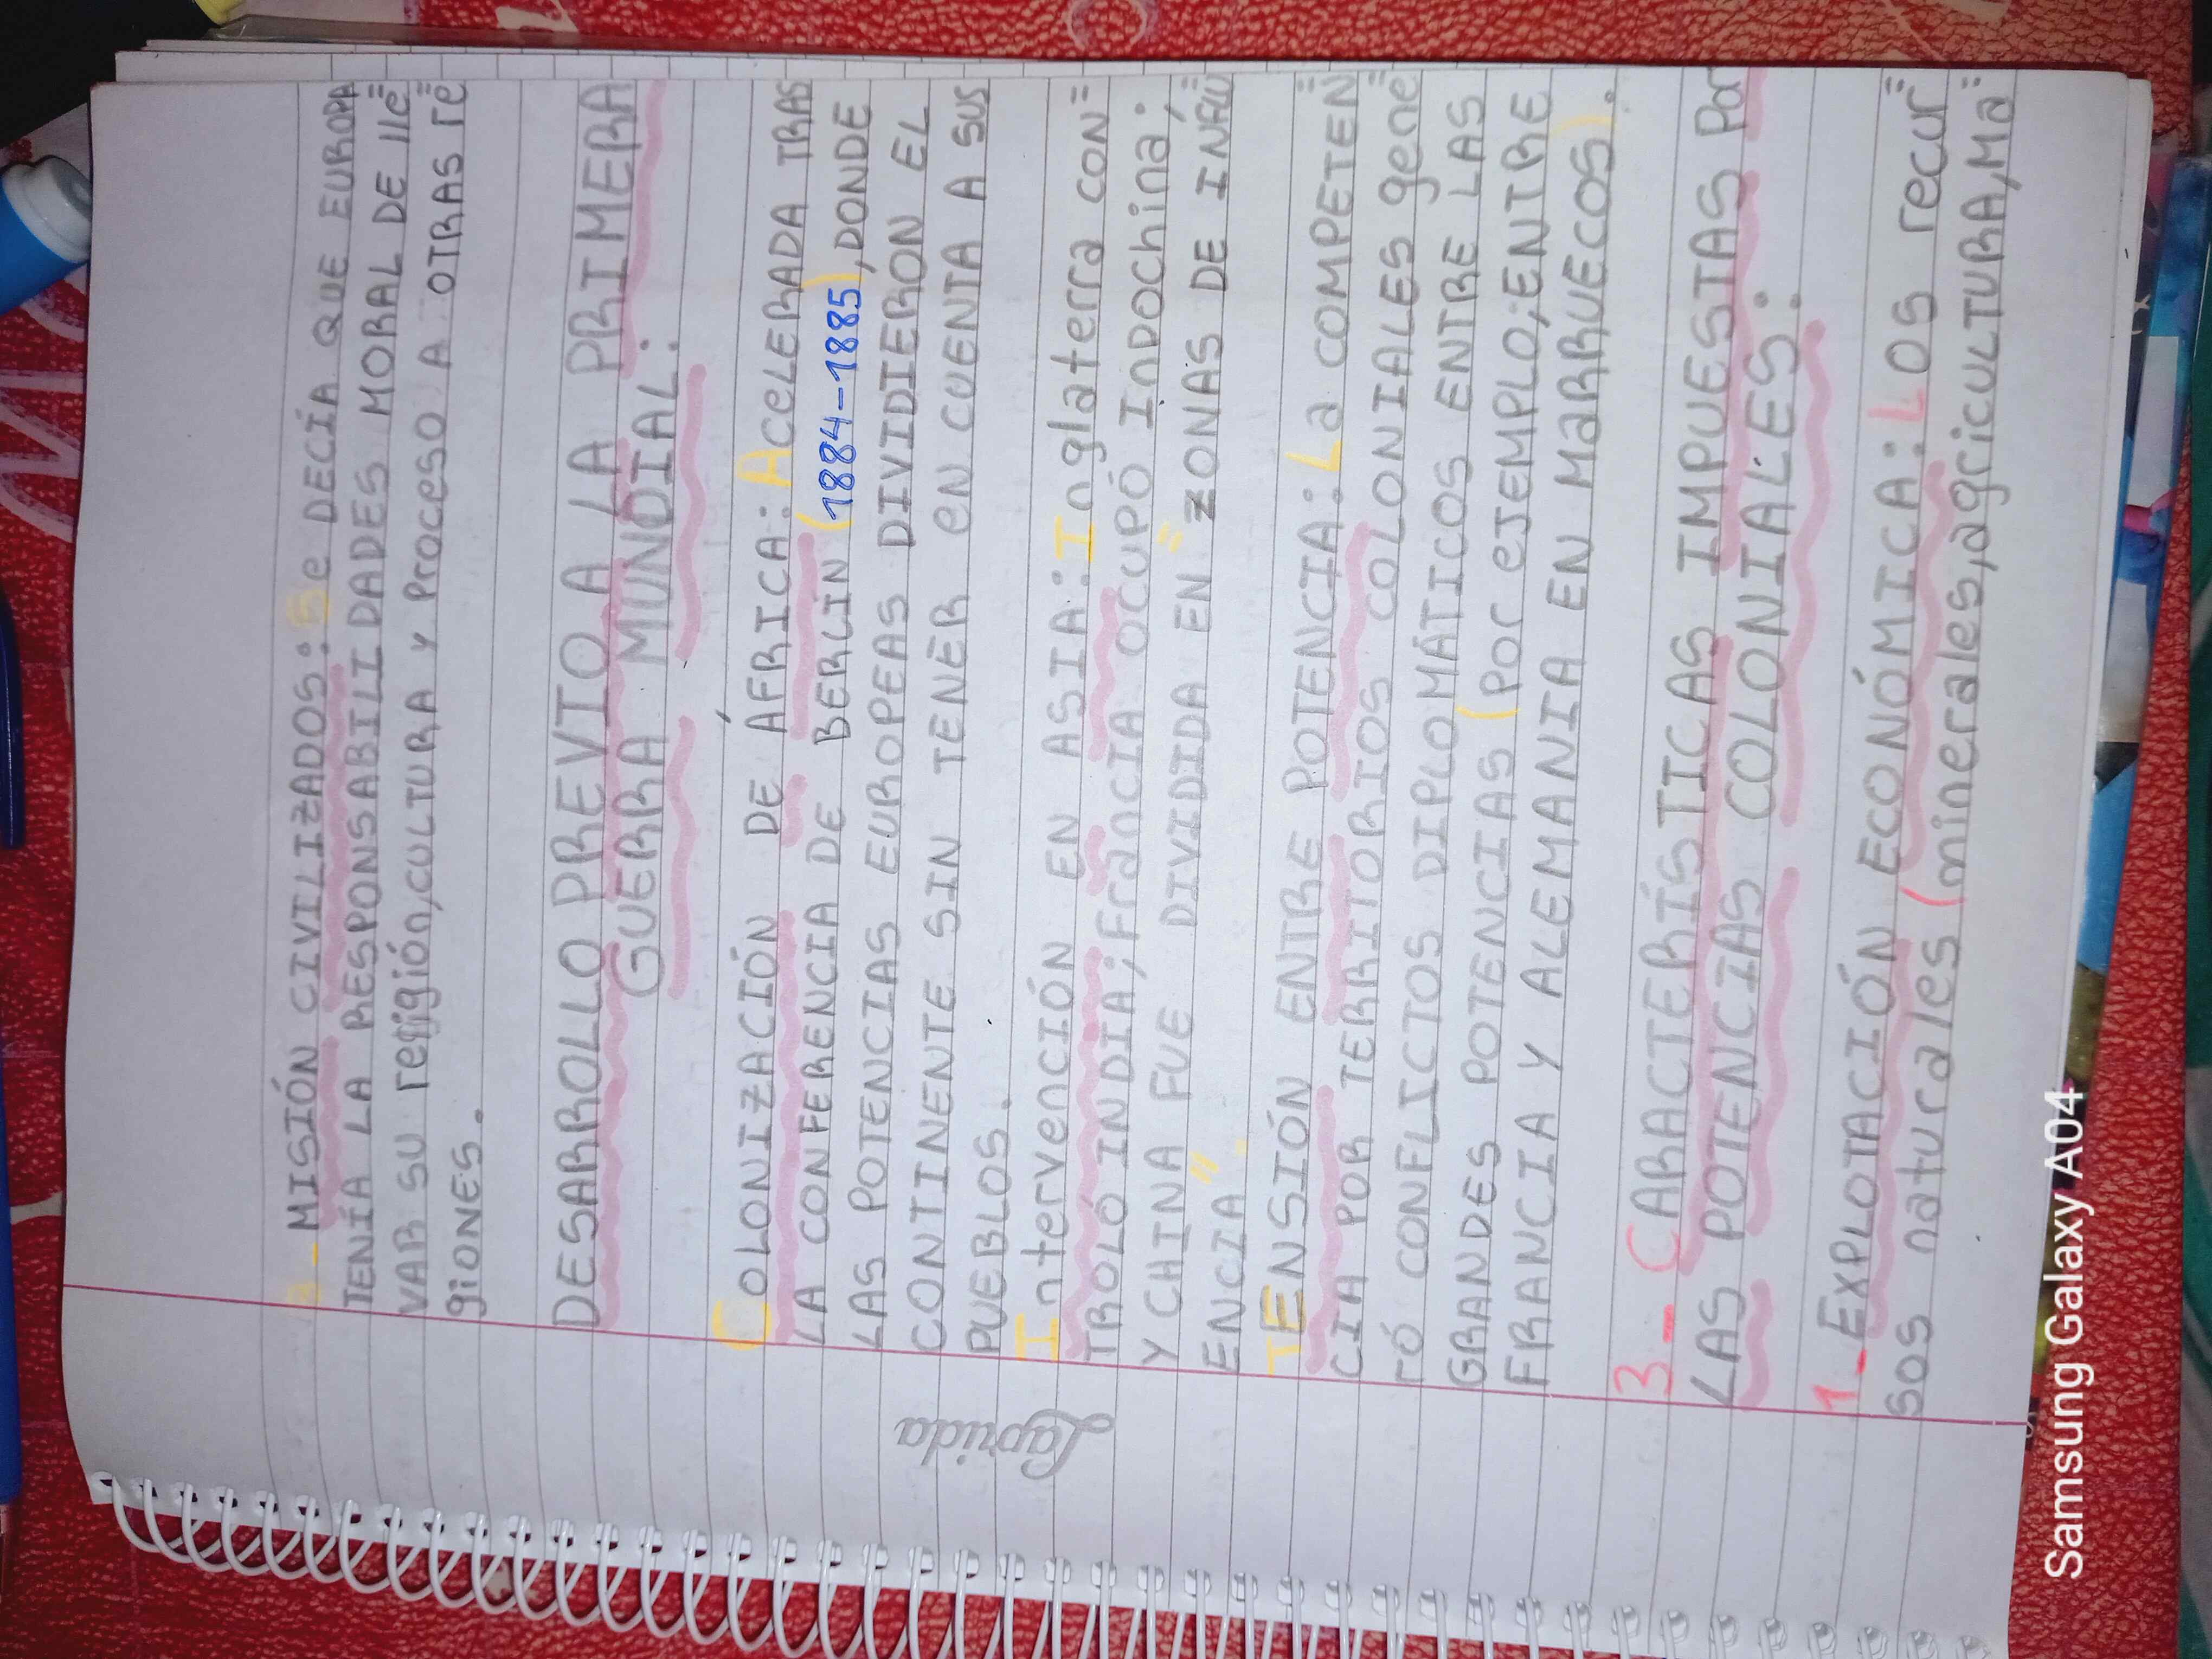 3- MISIÓN CIVILIZADOS: Se DECÍA QUE EUROPA
TENÍA LA RESPONSABILIDADES MORAL DE lle=
VAR SU religión,CULTURA Y Proceso A OTRAS re=
giones.
DESARROLLO PREVIO A LA PRIMERA
GUERRA MUNDIAL:
COLONIZACIÓN DE ÁFRICA: ACELERADA TRAS
LA CONFERENCIA DE BERLÍN (1884-1885), DONDE
LAS POTENCIAS EUROPEAS DIVIDIERON EL
CONTINENTE SIN TENER EN CUENTA A SUS
PUEBLOS.
Intervención EN ASIA: Inglaterra CON=
TROLÓ INDIA; Francia OCUPÓ Indochina;
Y CHINA FUE DIVIDIDA EN "ZONAS DE INFLU=
ENCIA".
TENSIÓN ENTRE POTENCIA: La COMPETEN=
CIA POR TERRITORIOS COLONIALES gene=
ró CONFLICTOS DIPLOMÁTICOS ENTRE LAS
GRANDES POTENCIAS (Por eJEMPLO; ENTRE
FRANCIA Y ALEMANIA EN MARRUECOS).
3- CARACTERÍSTICAS IMPUESTAS Por
LAS POTENCIAS COLONIALES:
1- EXPLOTACIÓN ECONÓMICA: LOS recur=
sos naturales (minerales,agriCULTURA,Ma=
Laprida
Samsung Galaxy A04